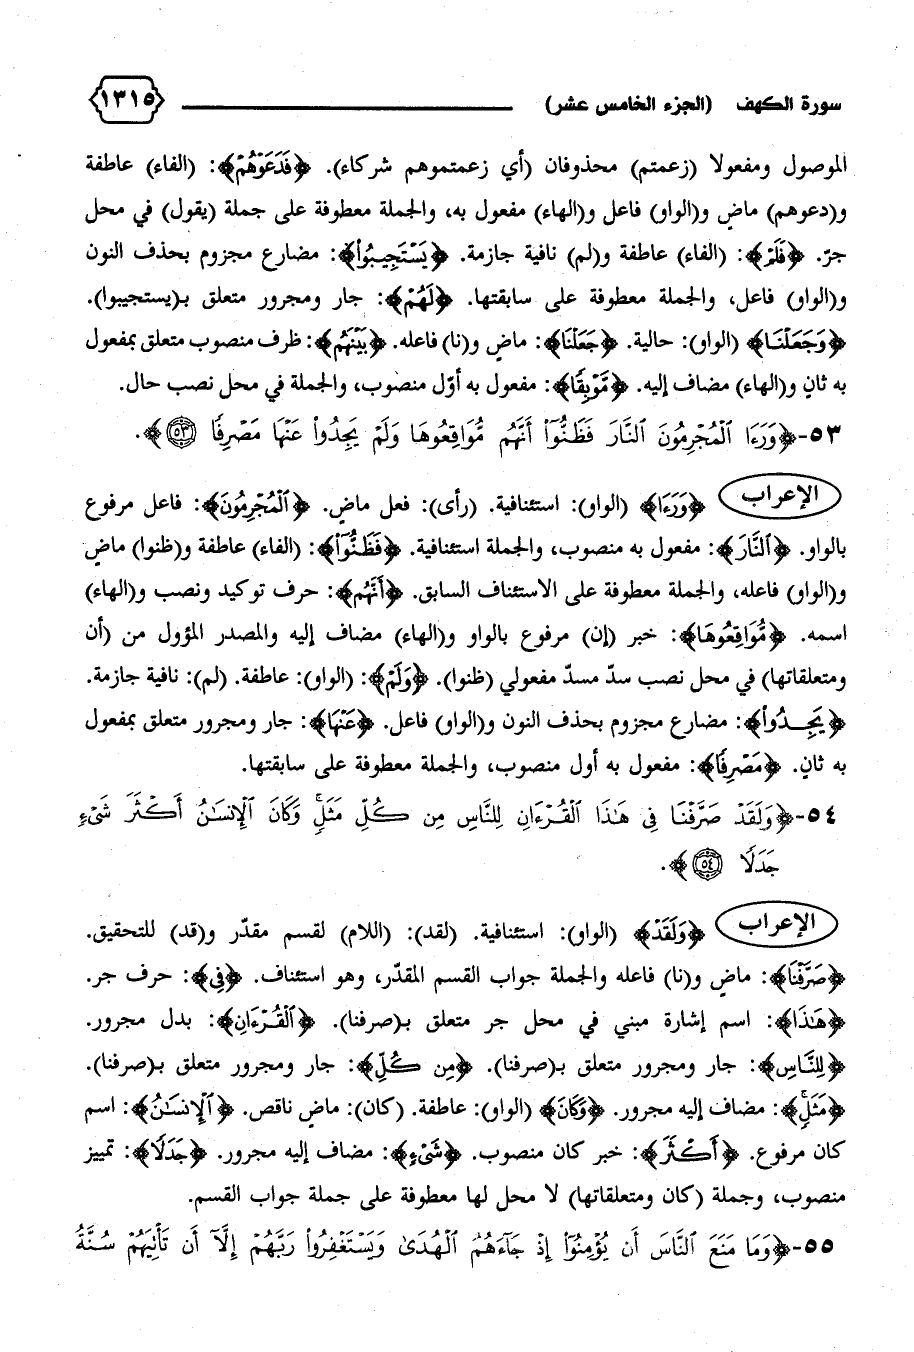 سورة الكهف (الجزء الخامس عشر) ١٣١٥
الموصول ومفعولا (زعمتم) محذوفان (أي زعمتموهم شركاء). ﴿فَدَعَوْهُمْ﴾: (الفاء) عاطفة
و(دعوهم) ماضٍ و(الواو) فاعل و(الهاء) مفعول به، والجملة معطوفة على جملة (يقول) في محل
جرّ. ﴿فَلَمْ﴾: (الفاء) عاطفة و(لم) نافية جازمة. ﴿يَسْتَجِيبُوا۟﴾: مضارع مجزوم بحذف النون
و(الواو) فاعل، والجملة معطوفة على سابقتها. ﴿لَهُمْ﴾: جار ومجرور متعلق بـ(يستجيبوا).
﴿وَجَعَلْنَا﴾ (الواو): حالية. ﴿جَعَلْنَا﴾: ماضٍ و(نا) فاعله. ﴿بَيْنَهُم﴾: ظرف منصوب متعلق بمفعول
به ثانٍ و(الهاء) مضاف إليه. ﴿مَّوْبِقًا﴾: مفعول به أوّل منصوب، والجملة في محل نصب حال.
٥٣-﴿وَرَءَا ٱلْمُجْرِمُونَ ٱلنَّارَ فَظَنُّوٓا۟ أَنَّهُم مُّوَاقِعُوهَا وَلَمْ يَجِدُوا۟ عَنْهَا مَصْرِفًا ٥٣﴾.
الإعراب ﴿وَرَءَا﴾ (الواو): استئنافية. (رأى): فعل ماضٍ. ﴿ٱلْمُجْرِمُونَ﴾: فاعل مرفوع
بالواو. ﴿ٱلنَّارَ﴾: مفعول به منصوب، والجملة استئنافية. ﴿فَظَنُّوٓا۟﴾: (الفاء) عاطفة و(ظنوا) ماضٍ
و(الواو) فاعله، والجملة معطوفة على الاستئناف السابق. ﴿أَنَّهُم﴾: حرف توكيد ونصب و(الهاء)
اسمه. ﴿مُّوَاقِعُوهَا﴾: خبر (إن) مرفوع بالواو و(الهاء) مضاف إليه والمصدر المؤول من (أن
ومتعلقاتها) في محل نصب سدّ مسدّ مفعولي (ظنوا). ﴿وَلَمْ﴾: (الواو): عاطفة. (لم): نافية جازمة.
﴿يَجِدُوا۟﴾: مضارع مجزوم بحذف النون و(الواو) فاعل. ﴿عَنْهَا﴾: جار ومجرور متعلق بمفعول
به ثانٍ. ﴿مَصْرِفًا﴾: مفعول به أول منصوب، والجملة معطوفة على سابقتها.
٥٤-﴿وَلَقَدْ صَرَّفْنَا فِى هَـٰذَا ٱلْقُرْءَانِ لِلنَّاسِ مِن كُلِّ مَثَلٍۢ ۚ وَكَانَ ٱلْإِنسَـٰنُ أَكْثَرَ شَىْءٍۢ
جَدَلًا ٥٤﴾.
الإعراب ﴿وَلَقَدْ﴾ (الواو): استئنافية. (لقد): (اللام) لقسم مقدّر و(قد) للتحقيق.
﴿صَرَّفْنَا﴾: ماضٍ و(نا) فاعله والجملة جواب القسم المقدّر، وهو استئناف. ﴿فِى﴾: حرف جر.
﴿هَـٰذَا﴾: اسم إشارة مبني في محل جر متعلق بـ(صرفنا). ﴿ٱلْقُرْءَانِ﴾: بدل مجرور.
﴿لِلنَّاسِ﴾: جار ومجرور متعلق بـ(صرفنا). ﴿مِن كُلِّ﴾: جار ومجرور متعلق بـ(صرفنا).
﴿مَثَلٍۢ ۚ﴾: مضاف إليه مجرور. ﴿وَكَانَ﴾ (الواو): عاطفة. (كان): ماضٍ ناقص. ﴿ٱلْإِنسَـٰنُ﴾: اسم
كان مرفوع. ﴿أَكْثَرَ﴾: خبر كان منصوب. ﴿شَىْءٍ﴾: مضاف إليه مجرور. ﴿جَدَلًا﴾: تمييز
منصوب، وجملة (كان ومتعلقاتها) لا محل لها معطوفة على جملة جواب القسم.
٥٥-﴿وَمَا مَنَعَ ٱلنَّاسَ أَن يُؤْمِنُوٓا۟ إِذْ جَآءَهُمُ ٱلْهُدَىٰ وَيَسْتَغْفِرُوا۟ رَبَّهُمْ إِلَّآ أَن تَأْتِيَهُمْ سُنَّةُ